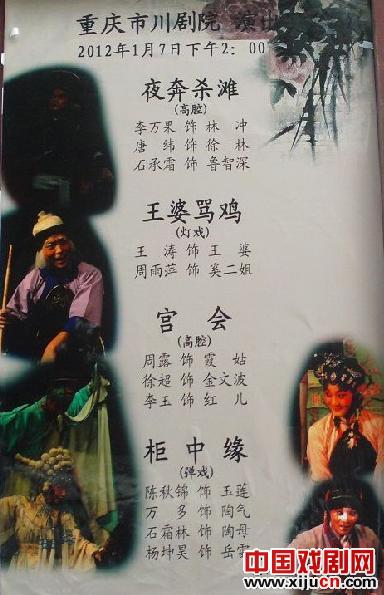 重庆市川剧院 演出
2012年1月7日下午2:00
夜奔杀滩
(高腔)
李万果 饰 林 冲
唐 纬 饰 徐 林
石承霜 饰 鲁智深
王婆骂鸡
(灯戏)
王 涛 饰 王 婆
周雨萍 饰 奚二姐
宫 会
(高腔)
周露 饰 霞 姑
徐超 饰 金文波
李玉 饰 红 儿
柜中缘
(弹戏)
陈秋锦 饰 玉莲
万 多 饰 陶气
石霜林 饰 陶母
杨坤昊 饰 岳雷
中国戏剧网
www.xijucn.com